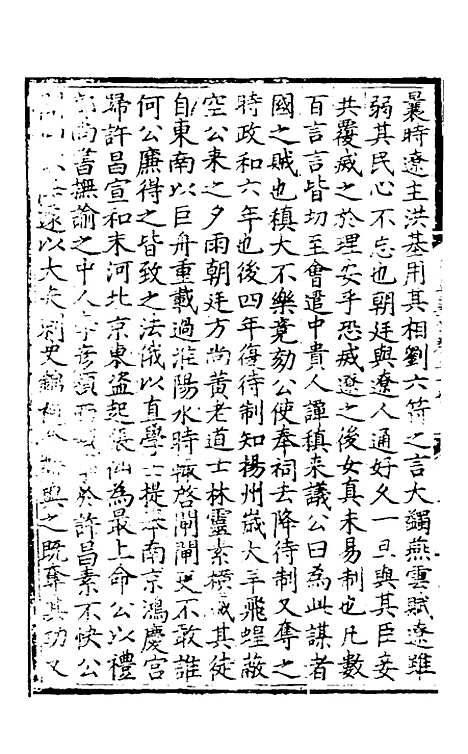 曩時遼主洪基用其相劉六符之言大蠲燕雲賦遼雖
弱其民心不忘也朝廷與遼人通好久一旦與其臣妾
共覆滅之於理安乎恐滅遼之後女真未易制也凡數
百言言皆切至會遣中貴人譚稹来議公曰為此謀者
國之賊也稹大不樂竟劾公使奉祠去降待制又奪之
時政和六年也後四年復待制知揚州歲大旱飛蝗蔽
空公来之夕雨朝廷方尚黄老道士林靈素横甚其徒
自東南以巨舟重載過淮陽水時輒啓閘閘吏不敢誰
何公廉得之皆致之法俄以直學士提舉南京鴻慶宫
歸許昌宣和末河北京東盗起張仙為最上命公以禮
部尚書撫諭之中人李彦領西城事於許昌素不快公
遂以大夫刺史錦袍公與之既奪其功又